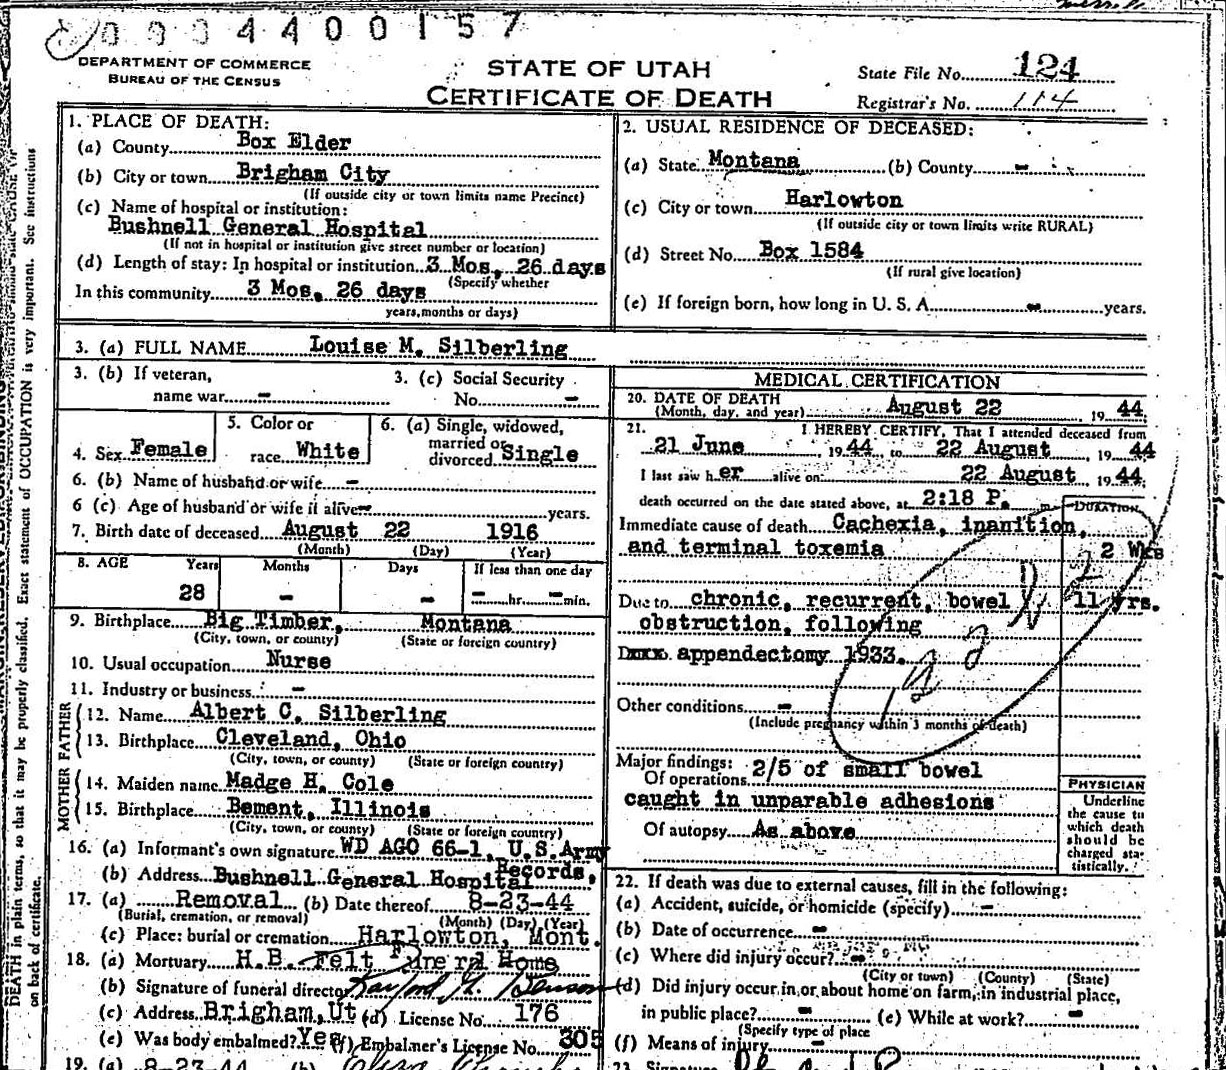 0004400157
DEPARTMENT OF COMMERCE
BUREAU OF THE CENSUS
STATE OF UTAH
CERTIFICATE OF DEATH
State File No. 124
Registrar's No. 114
1. PLACE OF DEATH:
(a) County Box Elder
(b) City or town Brigham City
(If outside city or town limits name Precinct)
(c) Name of hospital or institution:
Bushnell General Hospital
(If not in hospital or institution give street number or location)
(d) Length of stay: In hospital or institution 3 Mos. 26 days
(Specify whether
In this community 3 Mos. 26 days
years, months or days)
2. USUAL RESIDENCE OF DECEASED:
(a) State Montana (b) County -
(c) City or town Harlowton
(If outside city or town limits write RURAL)
(d) Street No. Box 1584
(If rural give location)
(e) If foreign born, how long in U. S. A. - years.
3. (a) FULL NAME Louise M. Silberling
3. (b) If veteran,
name war -
3. (c) Social Security
No. -
4. Sex Female
5. Color or
race White
6. (a) Single, widowed,
married or
divorced Single
6. (b) Name of husband or wife -
6 (c) Age of husband or wife if alive - years.
7. Birth date of deceased August 22 1916
(Month) (Day) (Year)
8. AGE Years Months Days If less than one day
28 - - - hr. - min.
9. Birthplace Big Timber, Montana
(City, town, or county) (State or foreign country)
10. Usual occupation Nurse
11. Industry or business -
FATHER
12. Name Albert C. Silberling
13. Birthplace Cleveland, Ohio
(City, town, or county) (State or foreign country)
MOTHER
14. Maiden name Madge H. Cole
15. Birthplace Bement, Illinois
(City, town, or county) (State or foreign country)
16. (a) Informant's own signature WD AGO 66-1, U.S. Army
Records,
(b) Address Bushnell General Hospital
17. (a) Removal (b) Date thereof 8-23-44
(Burial, cremation, or removal) (Month) (Day) (Year)
(c) Place: burial or cremation Harlowton, Mont.
18. (a) Mortuary H.B. Felt Funeral Home
(b) Signature of funeral director
(c) Address Brigham, Ut (d) License No. 176
(e) Was body embalmed? Yes (f) Embalmer's License No. 305
19. (a) 8-23-44 (b)
MEDICAL CERTIFICATION
20. DATE OF DEATH
(Month, day, and year) August 22, 19 44
21. I HEREBY CERTIFY, That I attended deceased from
21 June, 19 44 to 22 August, 19 44
I last saw her alive on 22 August, 19 44,
death occurred on the date stated above, at 2:18 P. m.
DURATION
Immediate cause of death Cachexia, inanition,
and terminal toxemia 2 Wks
Due to chronic, recurrent, bowel 11 yrs.
obstruction, following
appendectomy 1933.
122
Other conditions -
(Include pregnancy within 3 months of death)
Major findings:
Of operations 2/5 of small bowel
caught in unparable adhesions
Of autopsy As above
PHYSICIAN
Underline
the cause to
which death
should be
charged sta-
tistically.
22. If death was due to external causes, fill in the following:
(a) Accident, suicide, or homicide (specify) -
(b) Date of occurrence -
(c) Where did injury occur? -
(City or town) (County) (State)
(d) Did injury occur in or about home on farm, in industrial place,
in public place? - (e) While at work? -
(Specify type of place
(f) Means of injury -
23. Signature
DEATH in plain terms, so that it may be properly classified. Exact statement of OCCUPATION is very important. See instructions
on back of certificate.